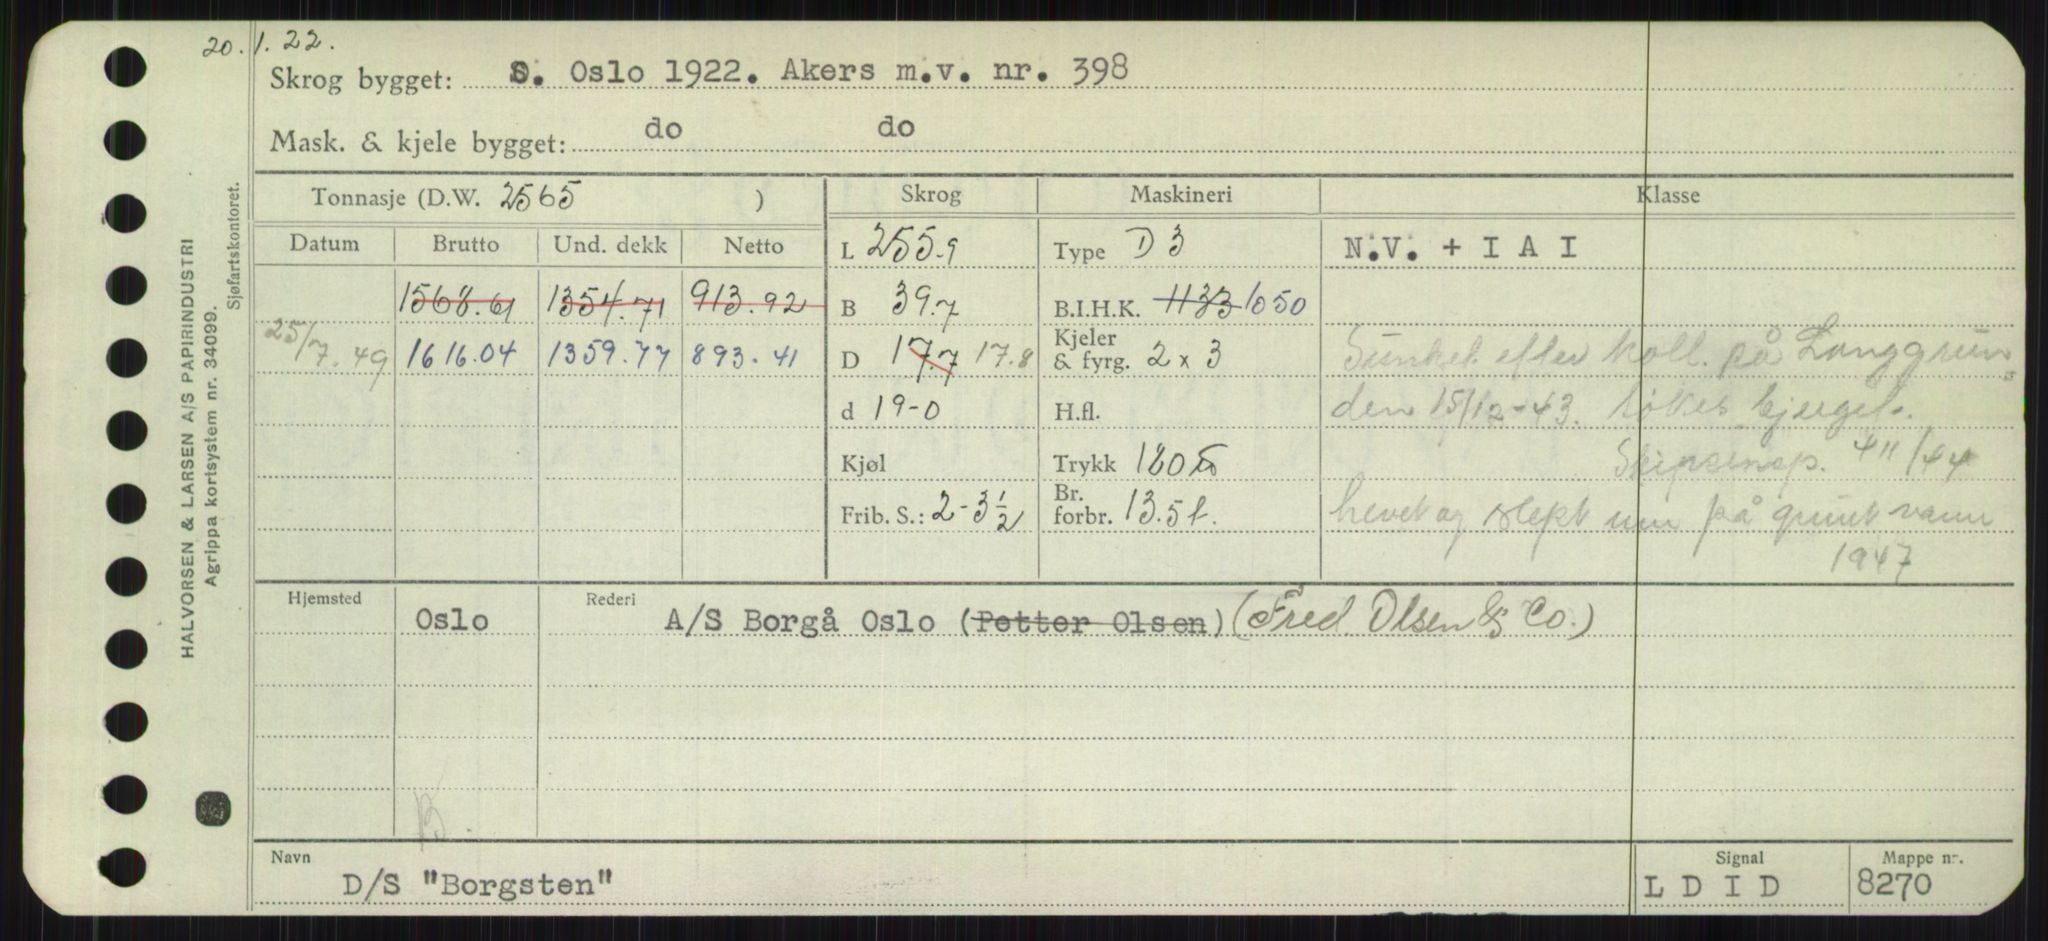 20. 1. 22.
Skrog bygget: S. Oslo 1922. Akers m.v. nr. 398
Mask. & kjele bygget: do do
Tonnasje (D.W. 2565 ) Skrog Maskineri Klasse
Datum Brutto Und. dekk Netto L 255.9 Type D 3 N.V. + I A I
1568.61 1354.71 913.92 B 39.7 B.I.H.K. 1133 1050
25/7.49 1616.04 1359.77 893.41 D 17.7 17.8 Kjeler & fyrg. 2 x 3 Sunket efter koll. på Langgrun-
d 19-0 H.fl. den 15/12-43. søkes bjerget.
Kjøl Trykk 180 4/11/44
Frib. S.: 2-3½ Br. forbr. 13.5 t. hevet og slept inn på grunt vann
1947
Hjemsted Oslo Rederi A/S Borgå Oslo (Petter Olsen) (Fred. Olsen & Co.)
B.
Navn Signal Mappe nr.
D/S "Borgsten" L D I D 8270
HALVORSEN & LARSEN A/S PAPIRINDUSTRI
Agrippa kortsystem nr. 34099.
Sjøfartskontoret.